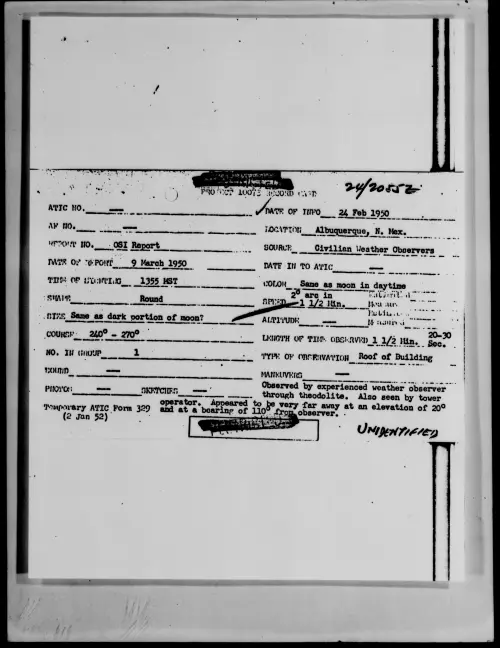 PROJECT 10073 RECORD CARD
24/2055Z
ATIC NO.
DATE OF INFO 24 Feb 1950
AF NO.
LOCATION Albuquerque, N. Mex.
REPORT NO. OSI Report
SOURCE Civilian Weather Observers
DATE OF REPORT 9 March 1950
DATE IN TO ATIC
TIME OF SIGHTING 1355 MST
COLOR Same as moon in daytime
SHAPE Round
SPEED 2° arc in 1 1/2 Min.
SIZE Same as dark portion of moon?
ALTITUDE
COURSE 240° - 270°
LENGTH OF TIME OBSERVED 1 1/2 Min. 20-30 Sec.
NO. IN GROUP 1
TYPE OF OBSERVATION Roof of Building
SOUND
MANEUVERS
PHOTOS SKETCHES
Observed by experienced weather observer
through theodolite. Also seen by tower
operator. Appeared to be very far away at an elevation of 20°
and at a bearing of 110° from observer.
Temporary ATIC Form 329
(2 Jan 52)
UNIDENTIFIED